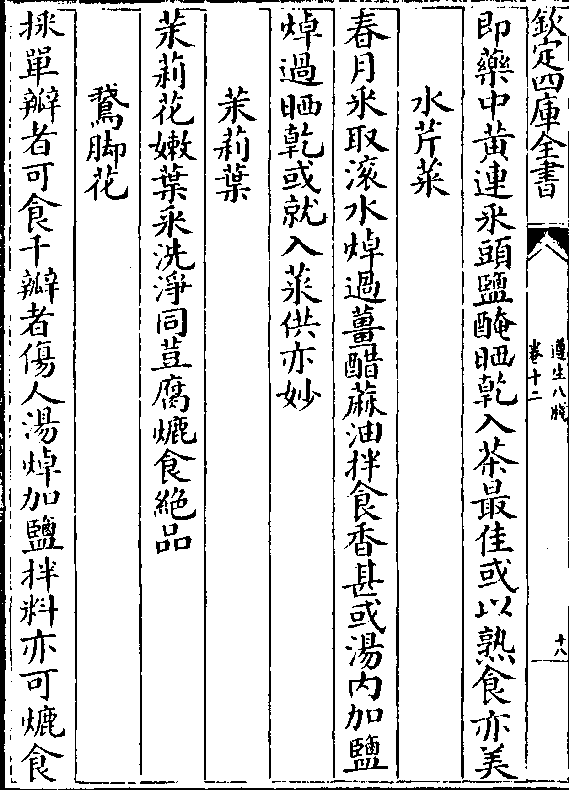 欽定四庫全書
遵生八牋
卷十二
十八
即藥中黃連采頭鹽醃晒乾入茶最佳或以熟食亦美
水芹菜
春月采取滚水焯過薑醋蔴油拌食香甚或湯內加鹽
焯過晒乾或就入菜供亦妙
茉莉葉
茉莉花嫩葉采洗淨同荳腐爊食絕品
鵞脚花
採單瓣者可食千瓣者傷人湯焯加鹽拌料亦可爊食